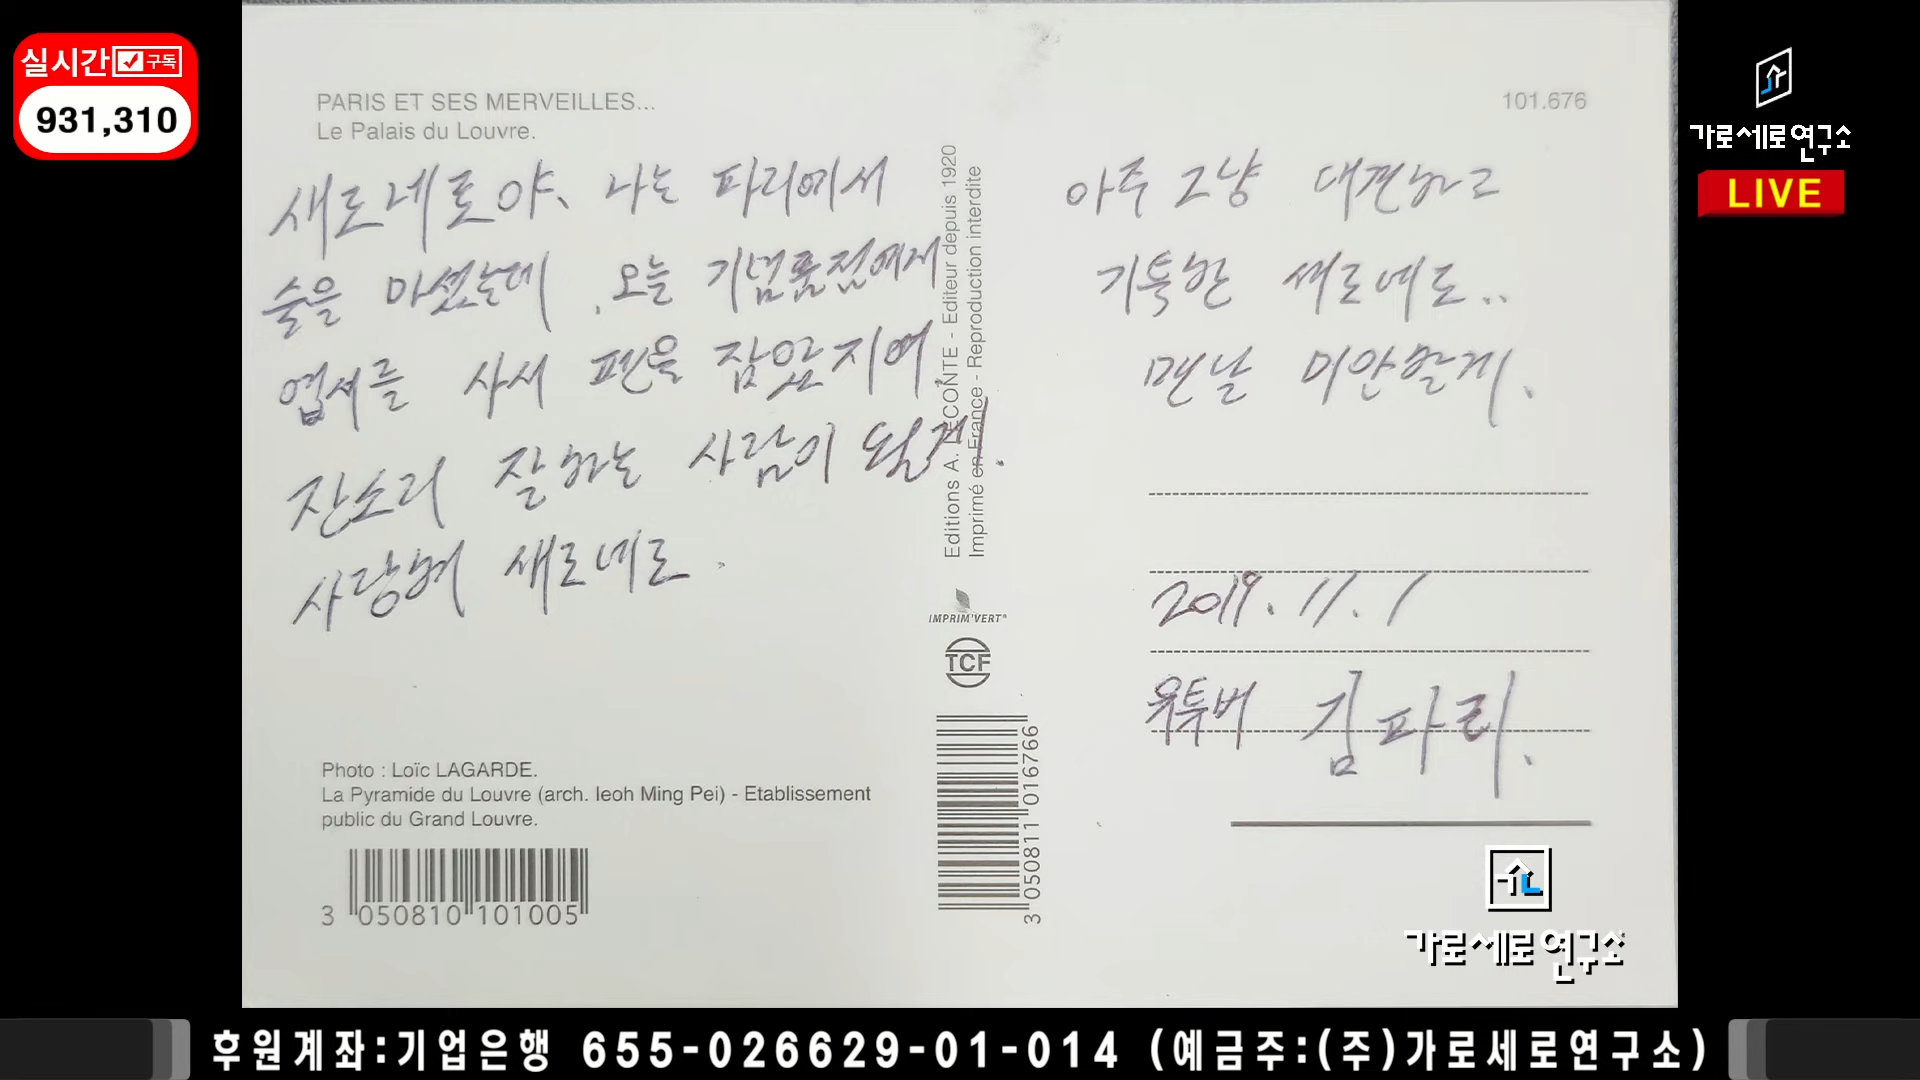 실시간 구독
931,310
가로세로연구소
LIVE
PARIS ET SES MERVEILLES...
Le Palais du Louvre.
101.676
새로네로야, 나는 파리에서
술을 마셨는데, 오늘 기념품점에서
엽서를 사서 펜을 잡았지여.
잔소리 잘하는 사람이 될게.
사랑해 새로네로.
아주 그냥 대견하고
기특한 새로네로..
맨날 미안할게.
2019.11.1
유투버 김파리.
Editions A. LECONTE - Editeur depuis 1920
Imprimé en France - Reproduction interdite
IMPRIM'VERT®
TCF
3 050811 016766
Photo : Loïc LAGARDE.
La Pyramide du Louvre (arch. Ieoh Ming Pei) - Etablissement
public du Grand Louvre.
3 050810 101005
가로세로연구소
후원계좌:기업은행 655-026629-01-014 (예금주:(주)가로세로연구소)